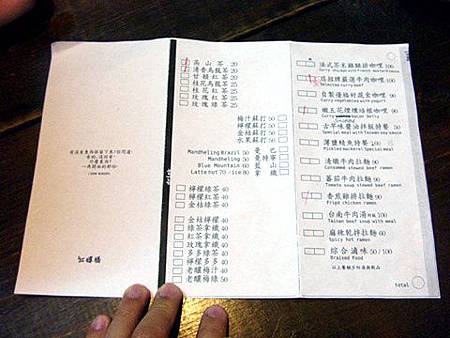 高山茶 20
清香烏龍茶 20
甘醇紅茶 20
桂花烏龍茶 25
桂花紅茶 25
玫瑰紅茶 25
玫瑰綠茶 25
梅汁蘇打 50
檸檬蘇打 50
金桔蘇打 50
水果蘇打 50
Mandheling Brazil 50 曼巴
Mandheling 50 曼特寧
Blue Mountain 60 藍山
Latte hot 70 /ice 80 拿鐵
檸檬綠茶 40
檸檬紅茶 40
金桔綠茶 40
金桔檸檬 40
綠茶拿鐵 40
紅茶拿鐵 40
玫瑰拿鐵 40
多多綠茶 40
檸檬多多 40
老罈梅汁 40
老罈檸檬 40
法式芥末雞腿排咖哩
Curry chicken with French mustard
招牌嚴選牛肉咖哩
Selected curry beef
自製優格野蔬食咖哩 90
Curry vegetables with yogurt
嫩五花燻燉培根咖哩 90
古早味醬油拌飯特餐 50
滷鹽鯖魚特餐 100
Pickled mackerel Special meal
清燉牛肉拉麵 90
Consomme stewed beef ramen
蕃茄牛肉拉麵 90
Tomato soup stewed beef ramen
香煎雞排拉麵 90
Fried chicken ramen
台南牛肉湯 100
Tainan beef soup with meal
麻辣乾拌拉麵 60
Spicy hot ramen
綜合滷味 50/100
Braised Food
total